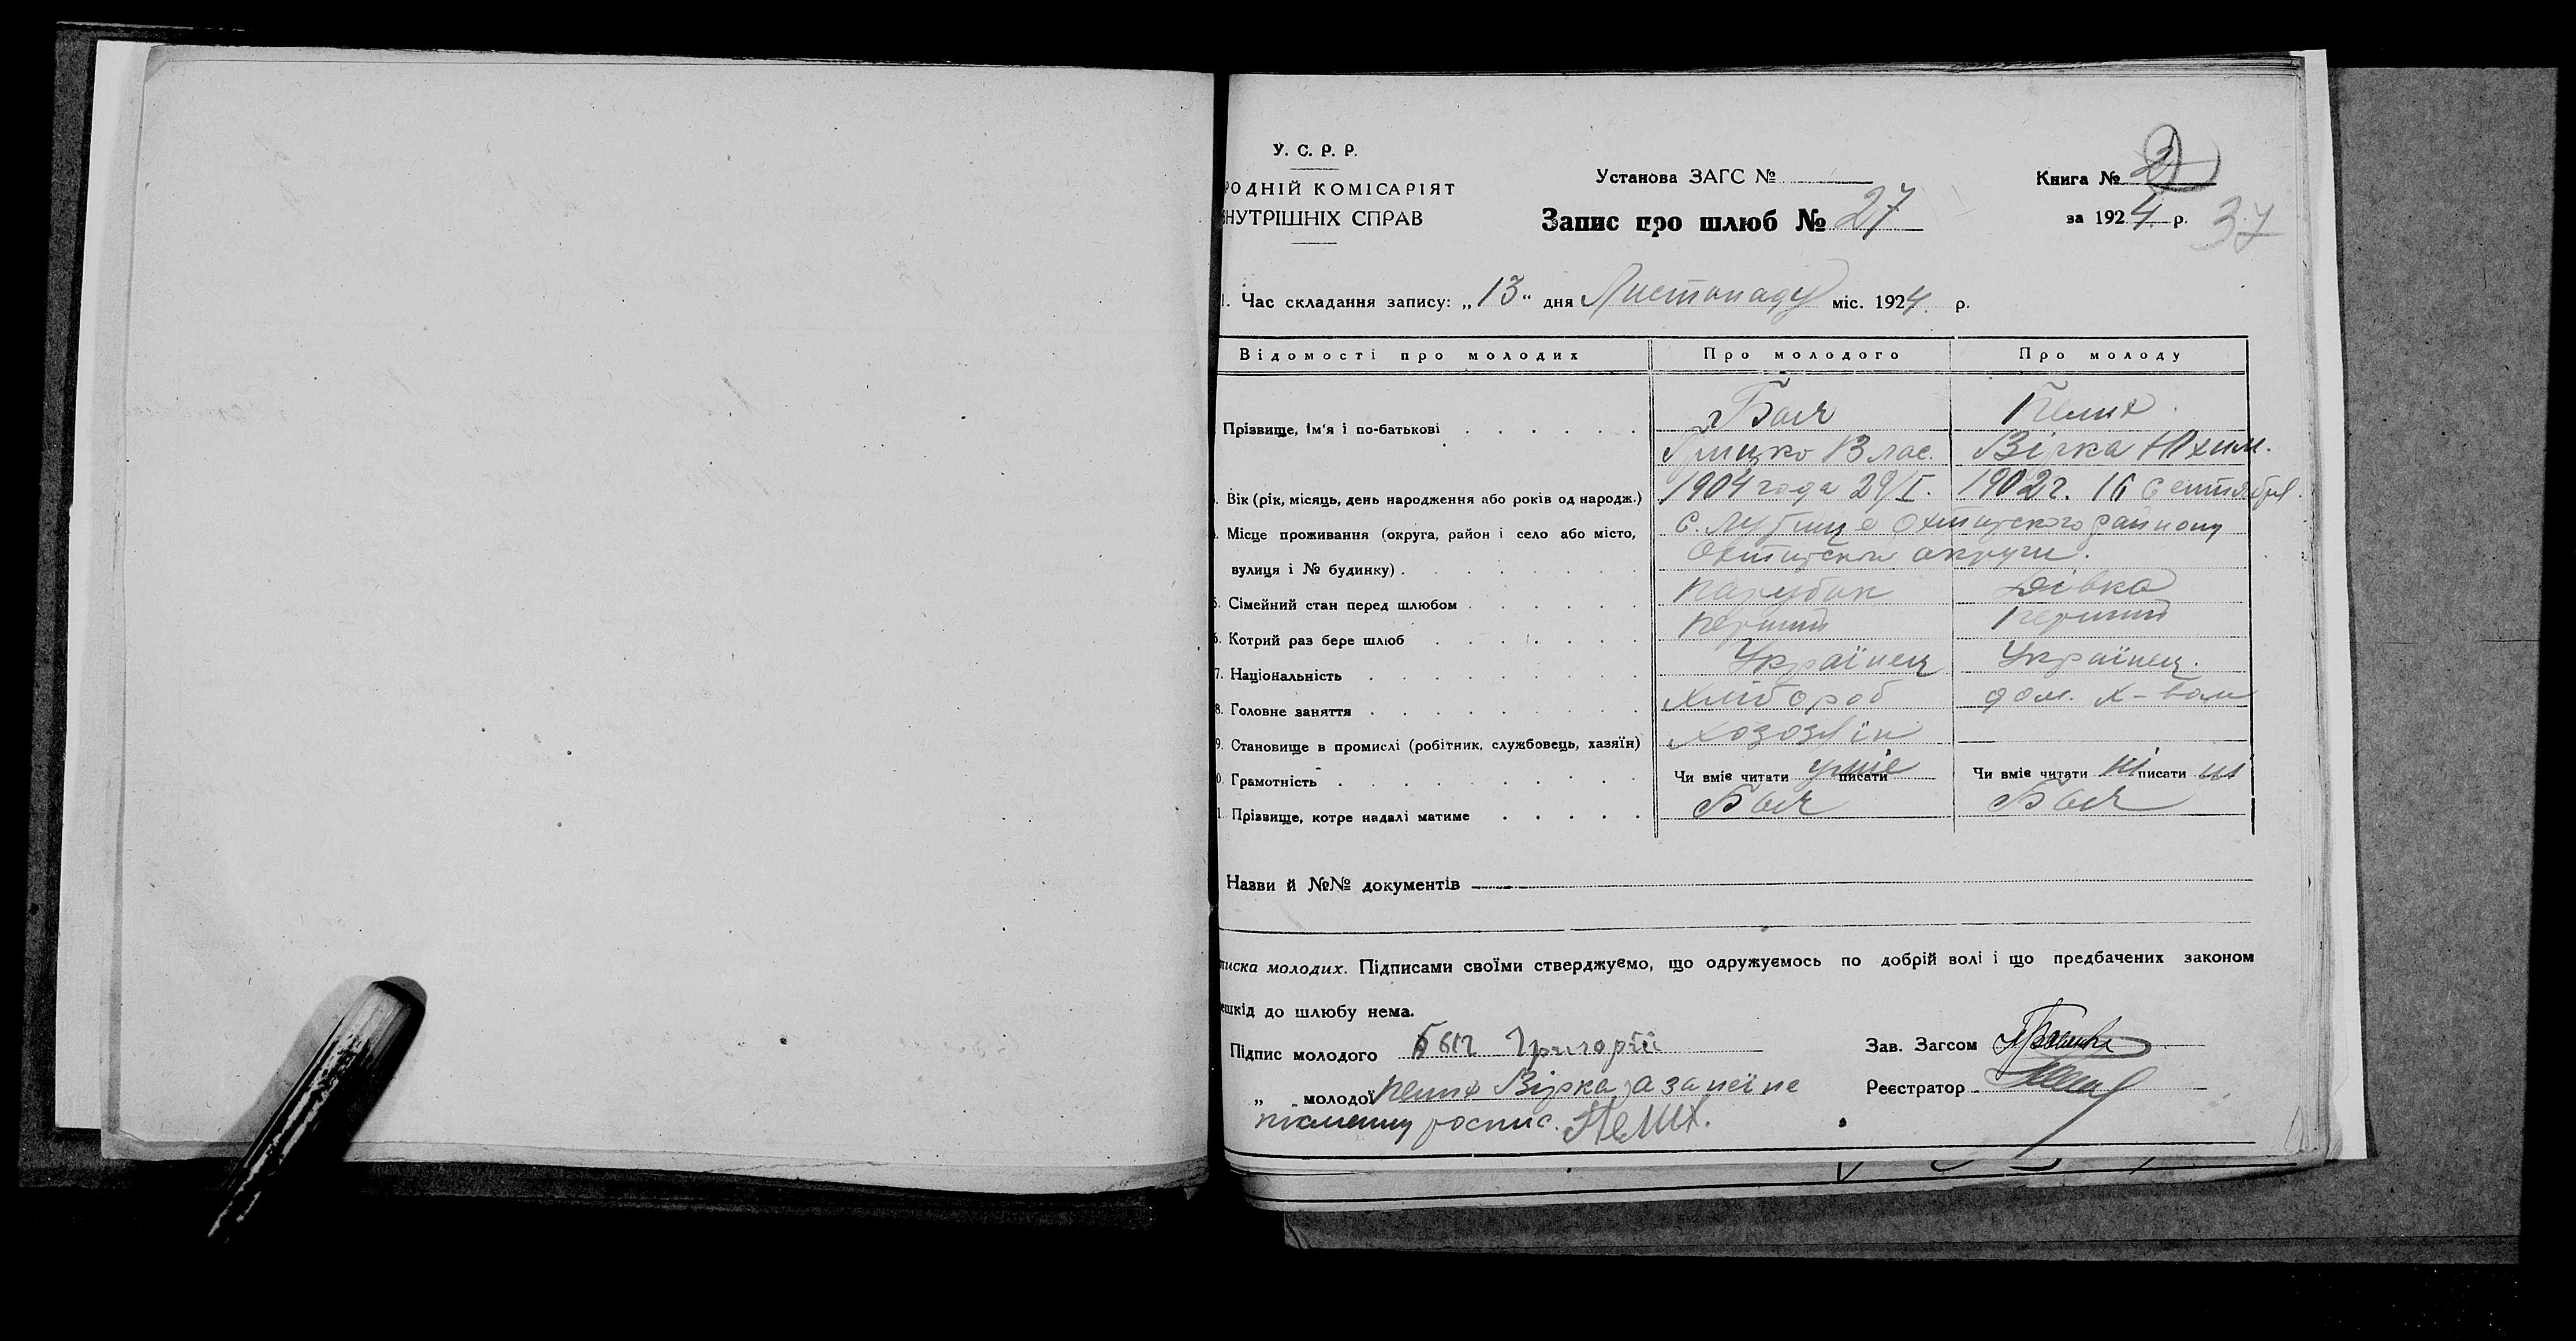 У. С. Р. Р.
РОДНІЙ КОМІСАРІЯТ
ВНУТРІШНІХ СПРАВ
Установа ЗАГС №
Запис про шлюб № 27
Книга № 2
за 1924 р.
37
1. Час складання запису: „13" дня Листопаду міс. 1924 р.
Відомості про молодих Про молодого Про молоду
Прізвище, ім'я і по-батькові
Грицко Влас. Вірка Юхим.
Вік (рік, місяць, день народження або років од народж.) 1904 года 29/I. 1902 г. 16 Сентября.
Місце проживання (округа, район і село або місто, с. Охтирского району
вулиця і № будинку) Охтирскои округи.
5. Сімейний стан перед шлюбом Парубок Дівка
6. Котрий раз бере шлюб Перший Перший
7. Національність Українец Українец.
8. Головне заняття Хлібороб дом. х-вом
9. Становище в промислі (робітник, службовець, хазяїн) Хозозяїн
0. Грамотність Чи вміє читати уміє писати Чи вміє читати ні писати ні
1. Прізвище, котре надалі матиме
Назви й №№ документів
писка молодих. Підписами своїми стверджуємо, що одружуємось по добрій волі і що предбачених законом
ешкід до шлюбу нема.
Підпис молодого Григорій
Зав. Загсом
„ молодої Пемих Вірка, а за неї не
Реєстратор
писменну роспис.